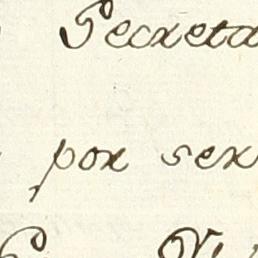 Secreta
por ser